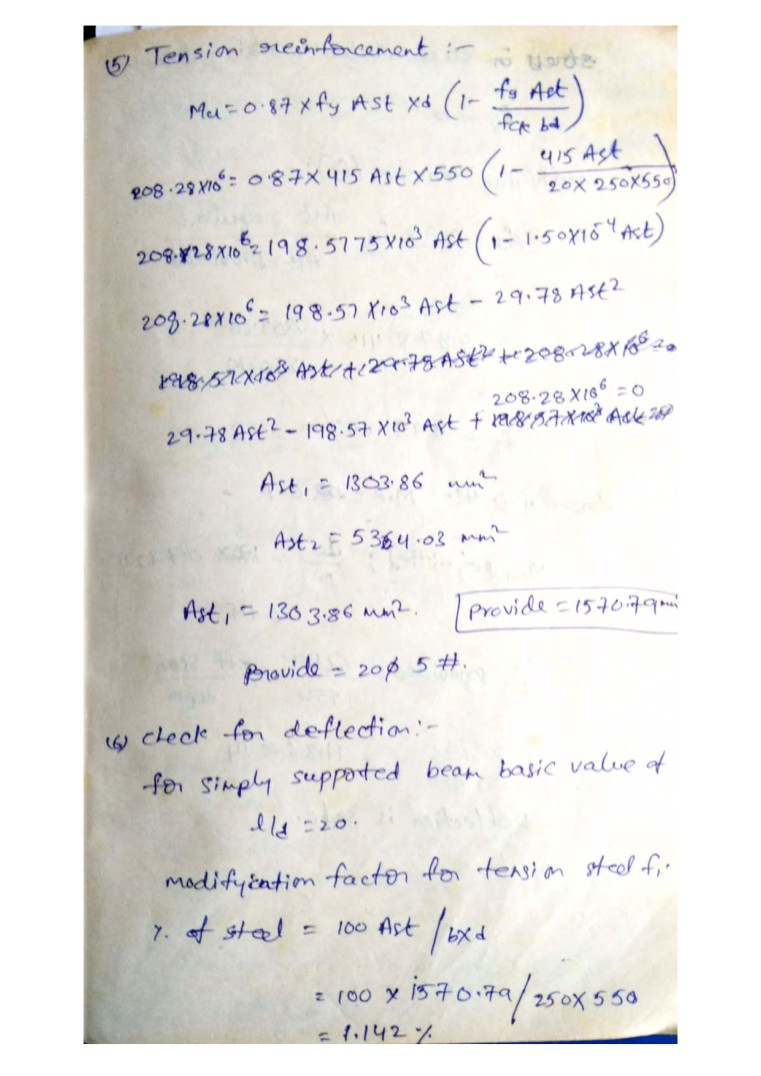 (5) Tension reinforcement :-
Mu = 0.87 x fy Ast xd (1- fy Ast / fck bd)
208.28x10⁶ = 0.87 x 415 Ast x 550 (1 - 415 Ast / 20x 250x550)
208.28x10⁶ = 198.5775x10³ Ast (1 - 1.50x10⁻⁴ Ast)
208.28x10⁶ = 198.57 x10³ Ast - 29.78 Ast²
208.28 x10⁶ = 0
29.78 Ast² - 198.57 x10³ Ast +
Ast₁ = 1303.86 mm²
Ast₂ = 5364.03 mm²
Ast₁ = 1303.86 mm². Provide = 1570.79
Provide = 20φ 5 #.
(6) check for deflection:-
for simply supported beam basic value of
l/d = 20.
modifyication factor for tension steel f₁.
%. of steel = 100 Ast / bxd
= 100 x 1570.79 / 250x 550
= 1.142 %